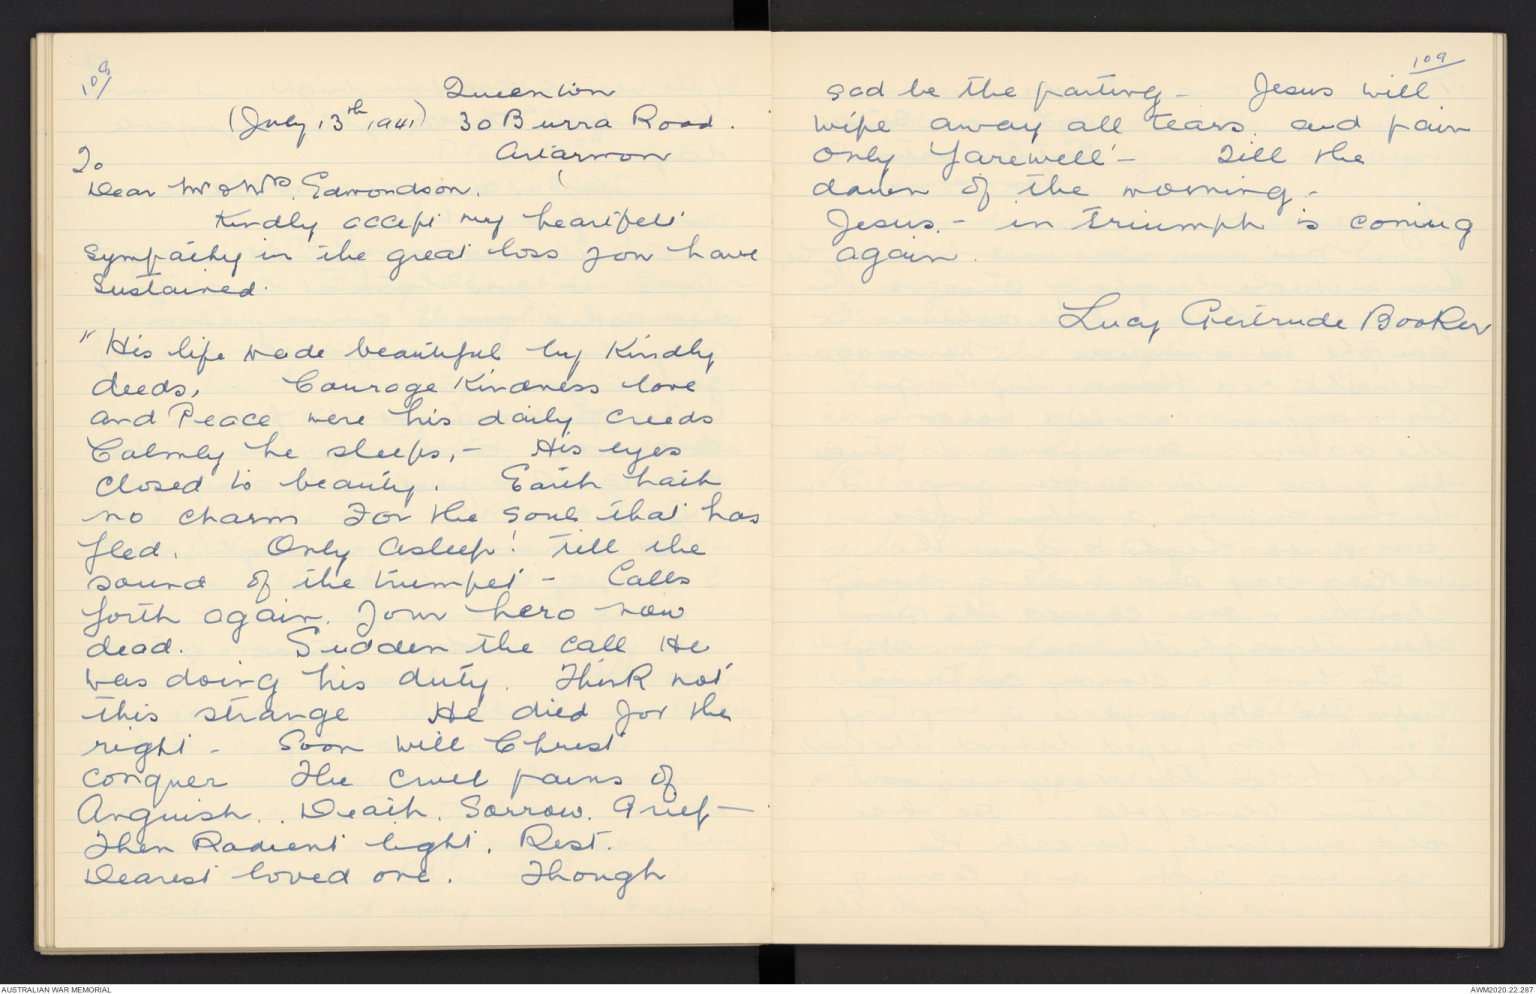 108
Queenton
(July 13th 1941) 30 Burra Road.
Artarmon
To
Dear Mr & Mrs Edmondson.
Kindly accept my heartfelt
sympathy in the great loss you have
sustained.
"His life made beautiful by Kindly
deeds, Courage Kindness love
and Peace were his daily creeds
Calmly he sleeps, - His eyes
closed to beauty. Earth hath
no charm For the soul that has
fled. Only asleep! Till the
sound of the trumpet - Calls
forth again. Your hero now
dead. Sudden the call He
was doing his duty. Think not
this strange He died for the
right - Soon will Christ
conquer The cruel pains of
Anguish.. Death. Sorrow. Grief -
Then Radient light. Rest.
Dearest loved one. Though
109
sad be the parting - Jesus will
wipe away all tears. and pain
only 'farewell' - Till the
dawn of the morning. -
Jesus. - in triumph is coming
again.
Lucy Gertrude Booker
AUSTRALIAN WAR MEMORIAL
AWM2020.22.287